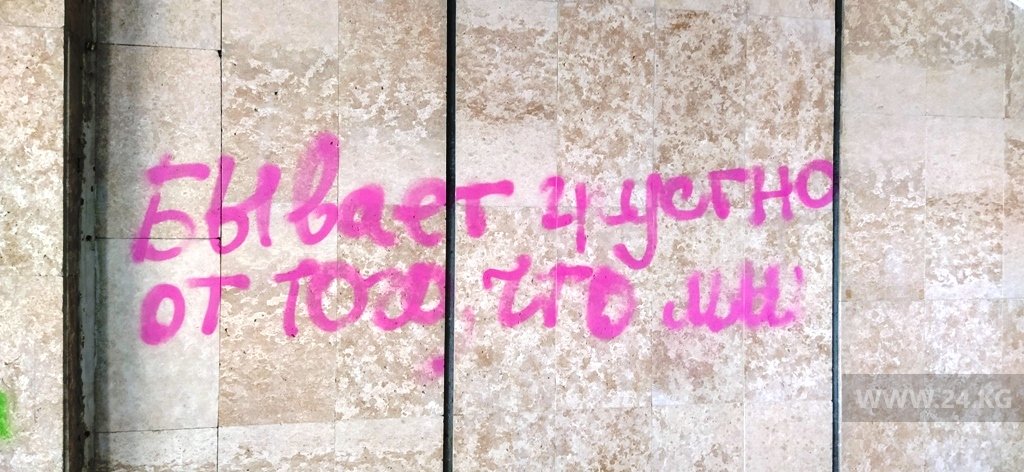 Бывает
от того, что мы
WWW.24.KG